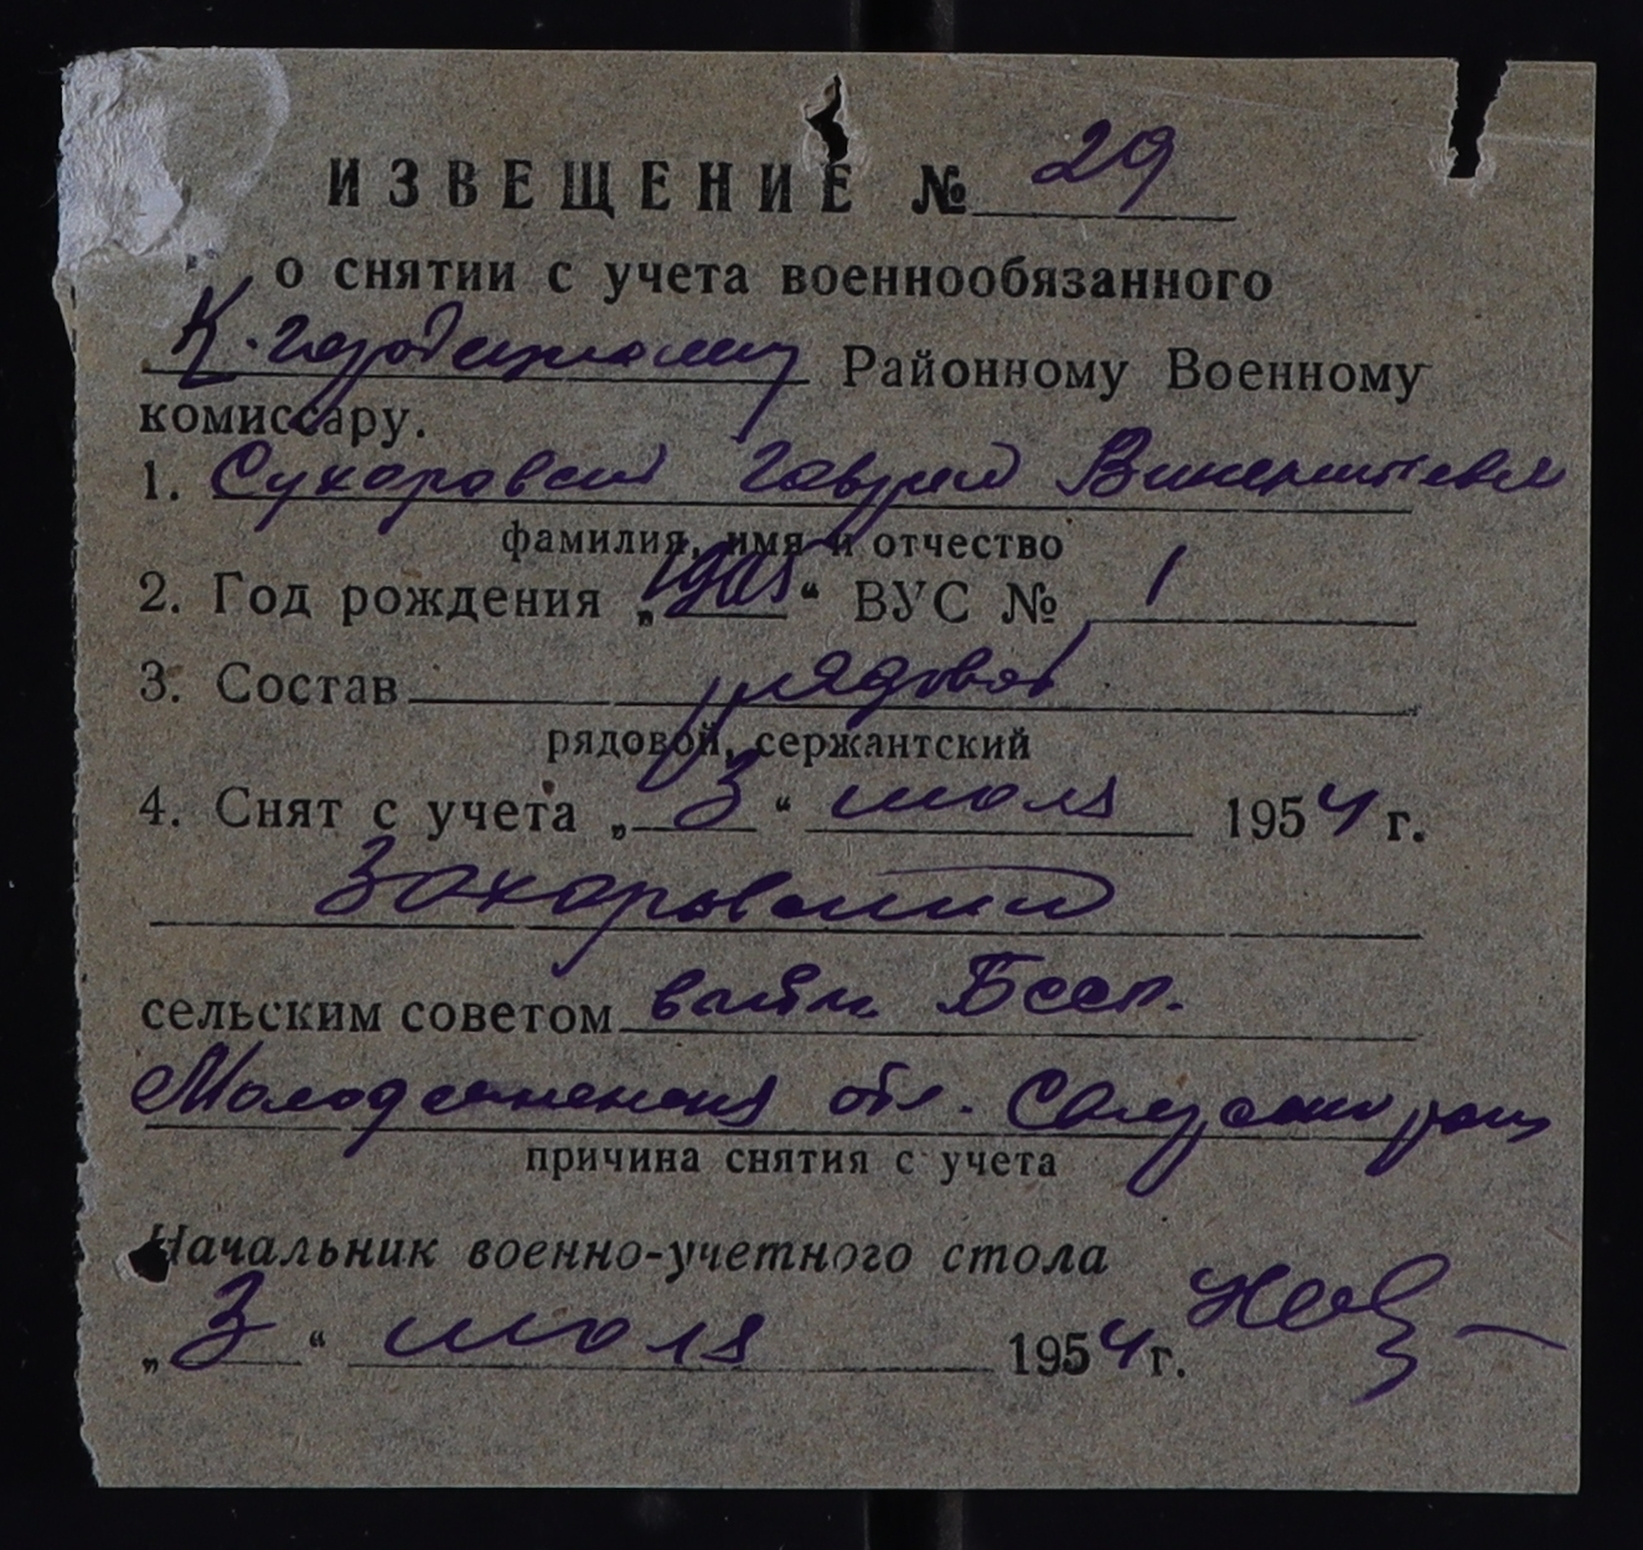 ИЗВЕЩЕНИЕ № 29
о снятии с учета военнообязанного
К-городскому Районному Военному
комиссару.
1. Сухаровский Гаврил Викентьевич
фамилия, имя и отчество
2. Год рождения „1905“ ВУС № 1
3. Состав рядовой
рядовой, сержантский
4. Снят с учета „3“ июля 1954 г.
Захаровский
сельским советом Бсср.
Молодеченская обл.
причина снятия с учета
Начальник военно-учетного стола
„3“ июля 1954 г.